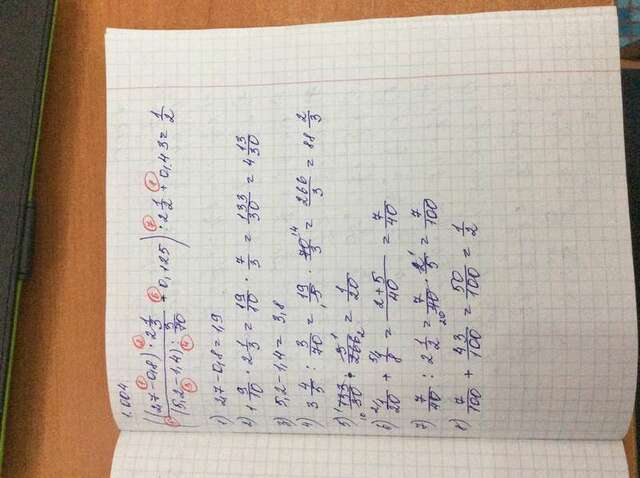 1.004.
((2,7 - 0,8) · 2 1/3 / (5,2 - 1,4) : 3/70 + 0,125) : 2 1/2 + 0,43 = 1/2
1) 2,7 - 0,8 = 1,9
2) 1 9/10 · 2 1/3 = 19/10 · 7/3 = 133/30 = 4 13/30
3) 5,2 - 1,4 = 3,8
4) 3 4/5 : 3/70 = 19/5 · 70/3 = 266/3 = 88 2/3
5) 133/30 · 3/266 = 1/20
6) 1/20 + 1/8 = 2+5/40 = 7/40
7) 7/40 : 2 1/2 = 7/40 · 2/5 = 7/100
8) 7/100 + 43/100 = 50/100 = 1/2